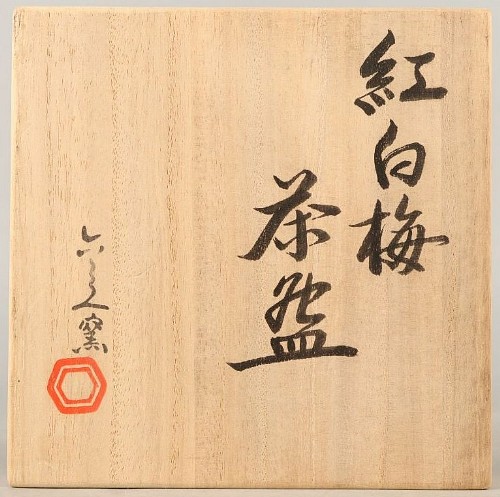 紅白梅
茶盌
六兵衛窯